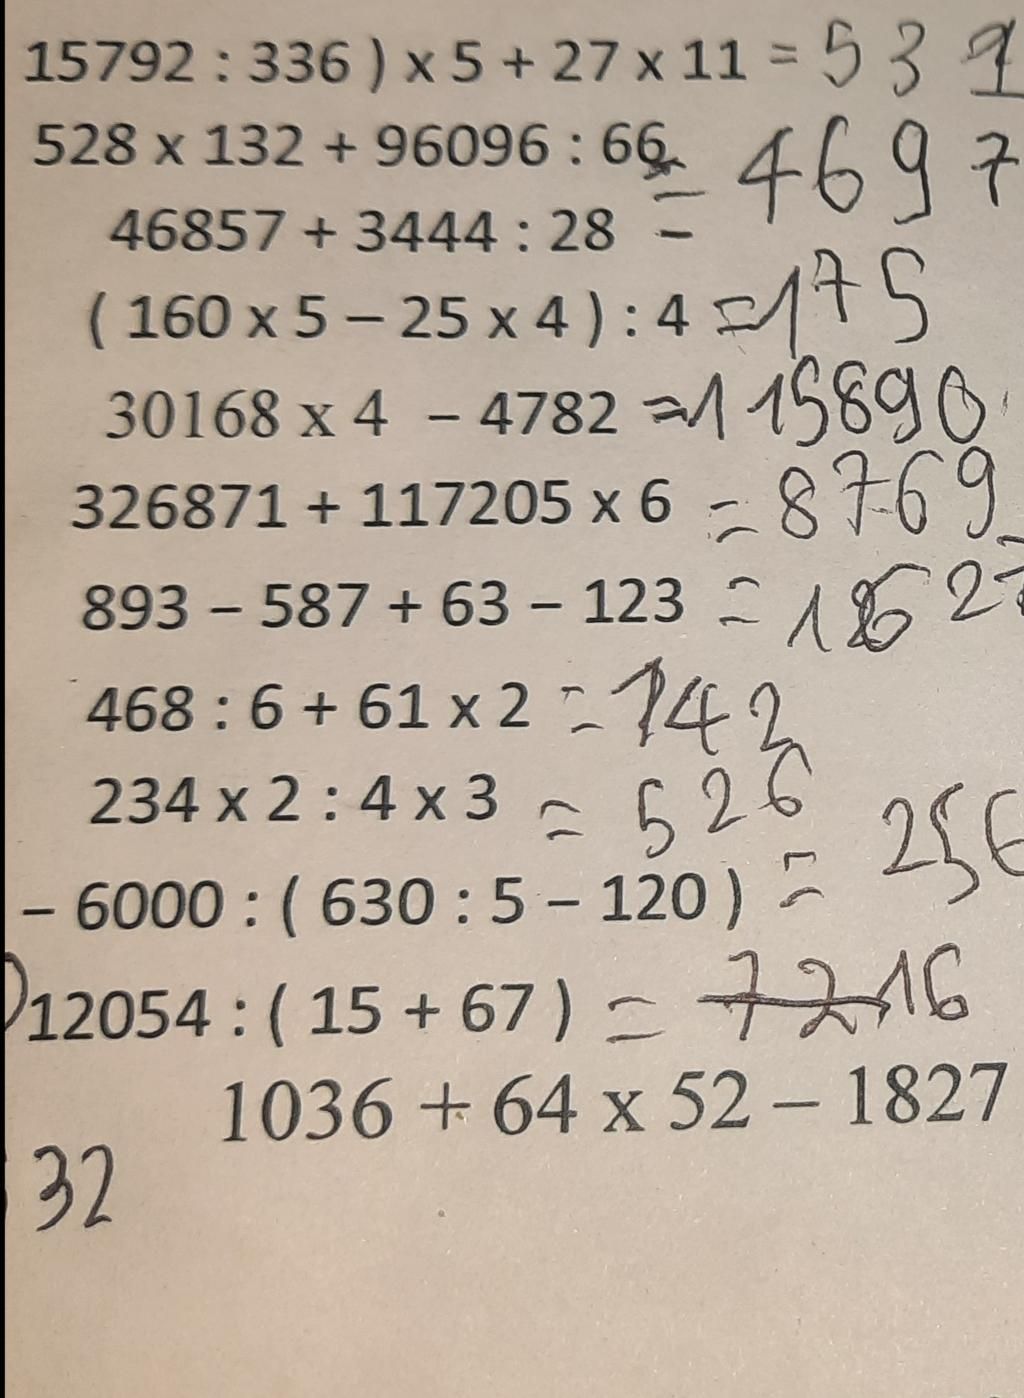 15792 : 336 ) x 5 + 27 x 11 = 53
528 x 132 + 96096 : 66 = 4697
46857 + 3444 : 28 =
( 160 x 5 – 25 x 4 ) : 4 = 175
30168 x 4 – 4782 = 115890
326871 + 117205 x 6 = 8769
893 – 587 + 63 – 123 =
468 : 6 + 61 x 2 = 142
234 x 2 : 4 x 3 = 526
– 6000 : ( 630 : 5 – 120 ) = 256
12054 : ( 15 + 67 ) = 7216
1036 + 64 x 52 – 1827
32